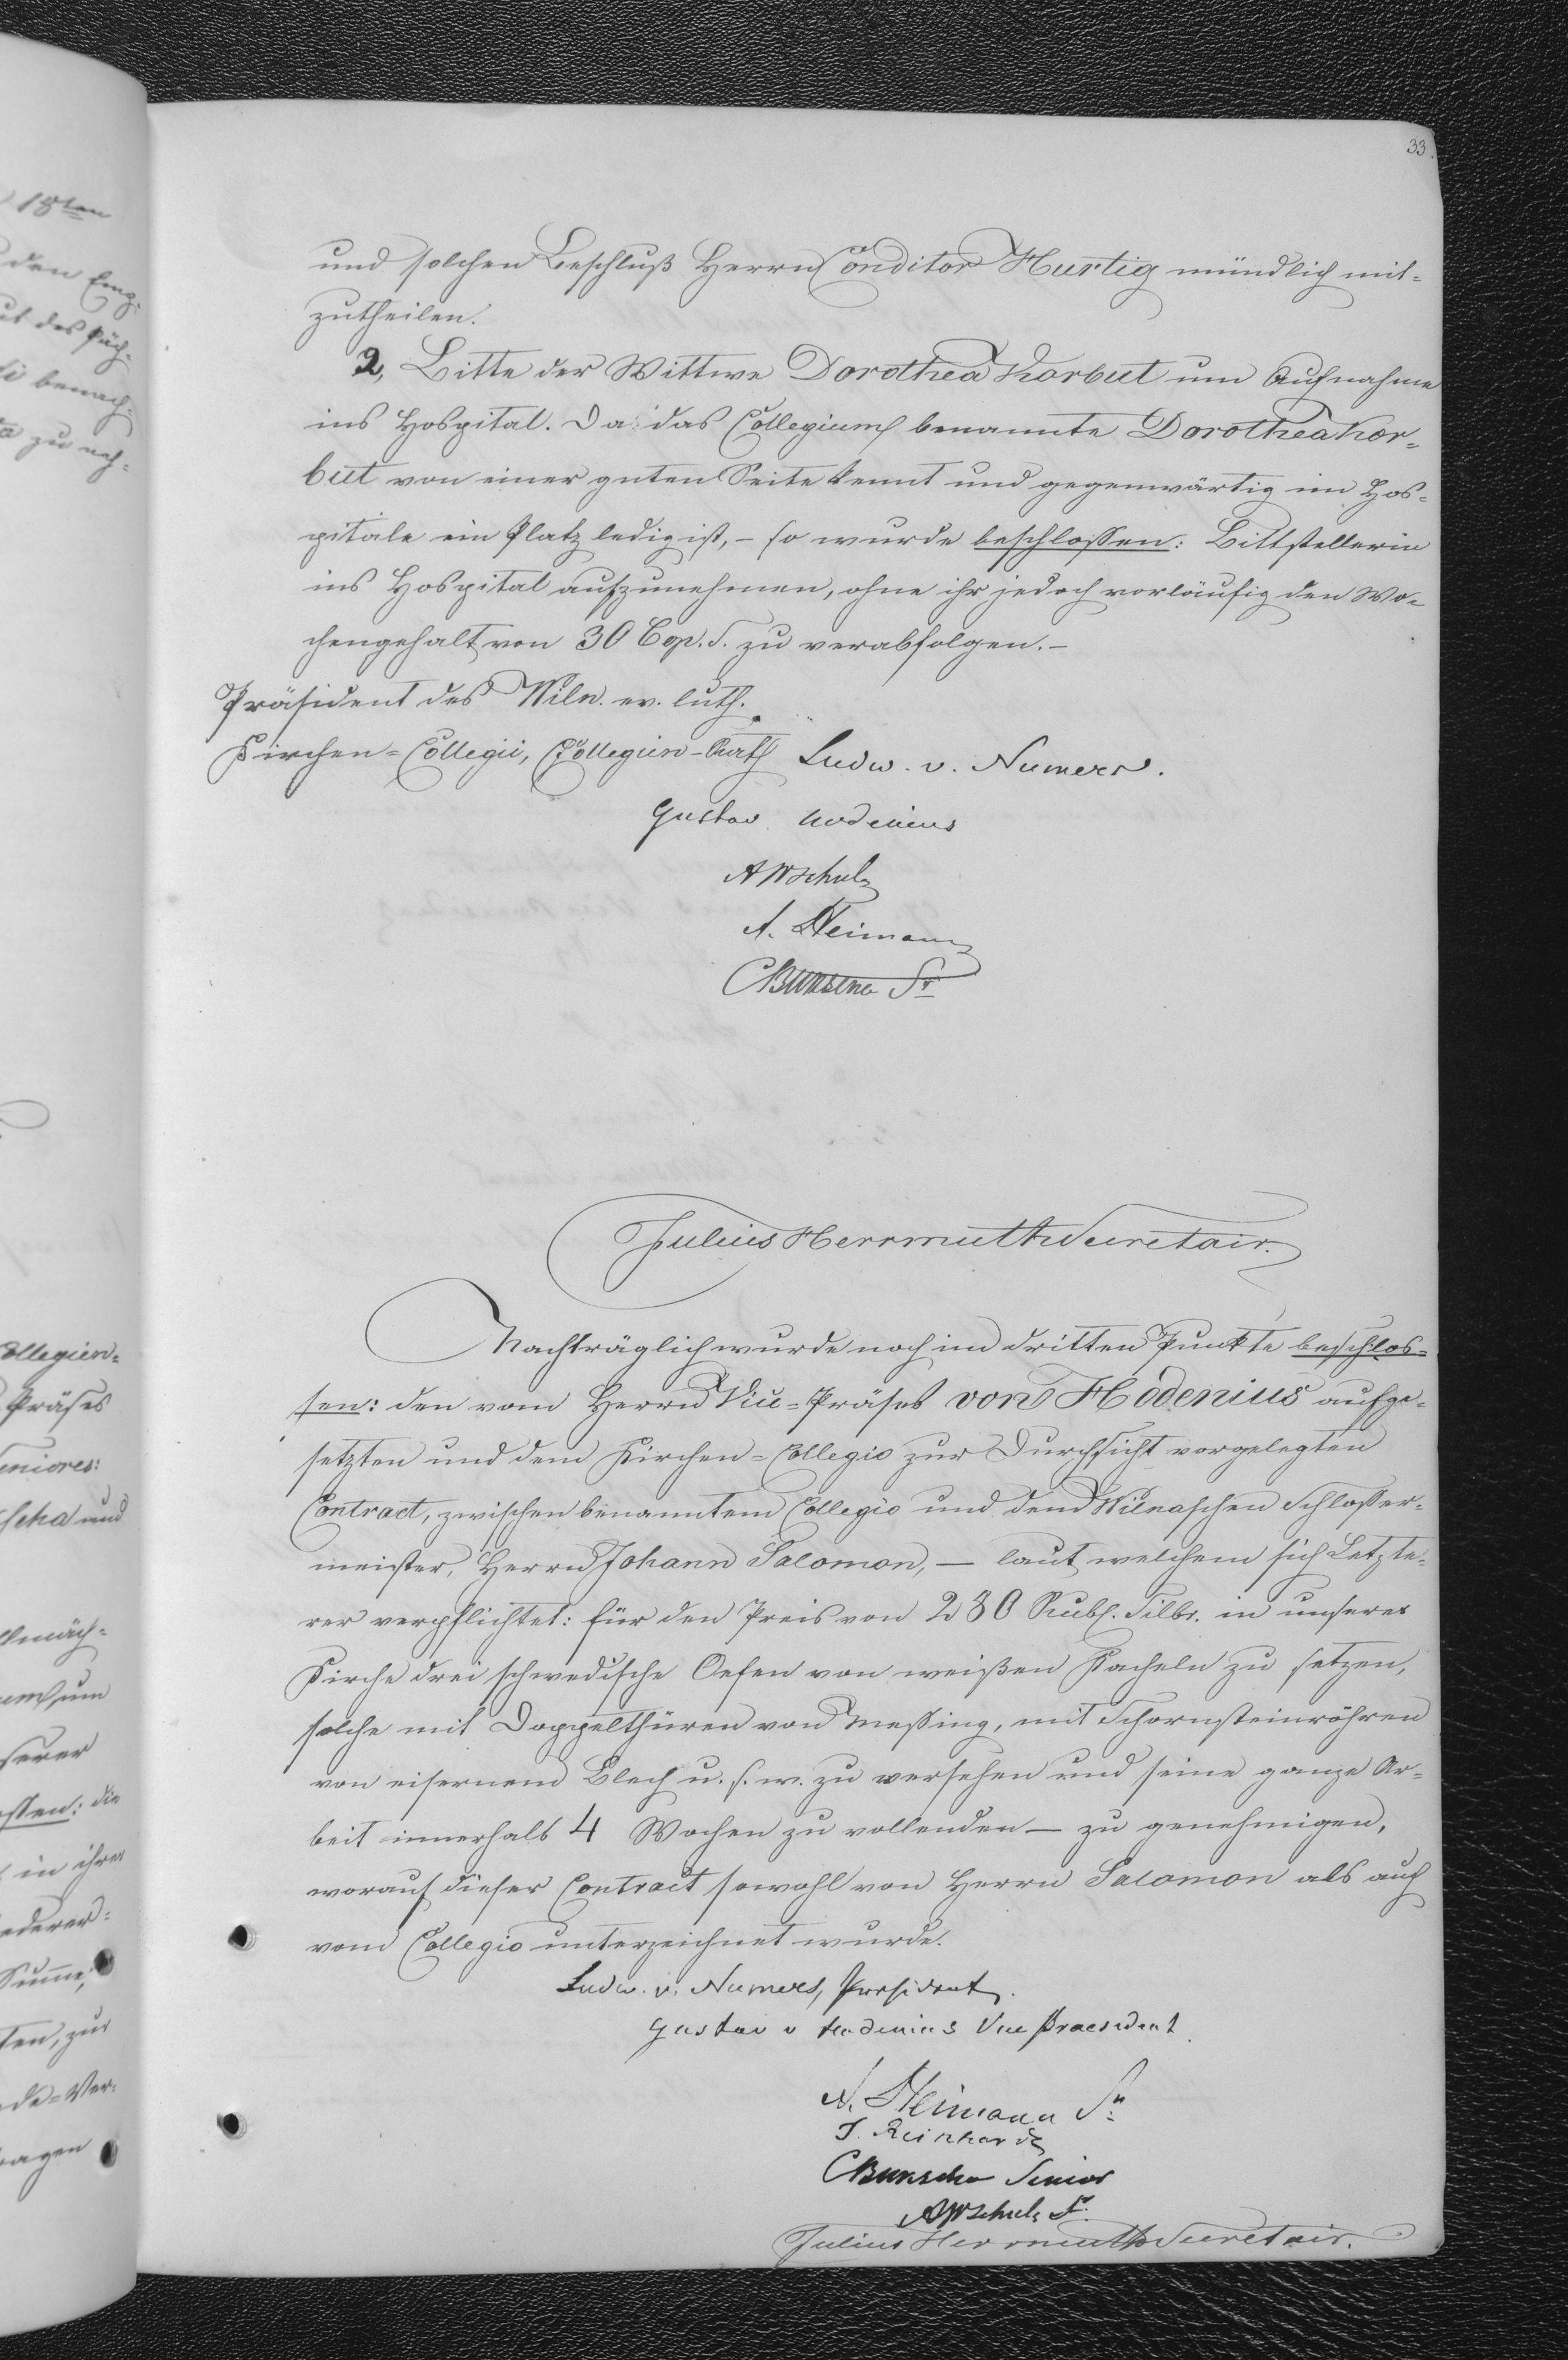 33.
und solchen Beschluß Herrn Conditor Hurtig mündlich mit-
zutheilen.
2, Bitte der Wittwe Dorothea Korbut um Aufnahme
ins Hospital. Da das Collegium benannte Dorothea Kor-
but von einer guten Seite kennt und gegenwärtig im Hos-
pitale ein Platz ledig ist, – so wurde beschlossen: Bittstellerin
ins Hospital aufzunehmen, ohne ihr jedoch vorläufig den Wo-
chengehalt von 30 Cop. S. zu verabfolgen. –
Präsident des Wiln. ev. luth.
Kirchen-Collegii, Collegien-Rath Ludw. v. Numers.
Gustav Hodenius
AW Schulz
A. Neimann
C Bunscha Sr
Julius Herrmuth Secretair.
Nachträglich wurde noch im dritten Punkte beschlos-
sen: den vom Herrn Vice-Präses von Hodenius aufge-
setzten und dem Kirchen-Collegio zur Durchsicht vorgelegten
Contract, zwischen benanntem Collegio und dem Wilnaschen Schlosser-
meister, Herrn Johann Salomon, – laut welchem sich Letzte-
rer verpflichtet: für den Preis von 230 Rubl. Silbr. in unserer
Kirche drei schwedische Oefen von weißen Kacheln zu setzen,
solche mit Doppelthüren von Messing, mit Schornsteinröhren
von eisernem Blech u. s. w. zu versehen und seine ganze Ar-
beit innerhalb 4 Wochen zu vollenden – zu genehmigen,
worauf dieser Contract sowohl von Herrn Salomon als auch
vom Collegio unterzeichnet wurde.
Ludw. v. Numers, Präsident.
Gustav v Hodenius Vice Praesident
A. Neimann Sr
J. Reinhardt
C Bunscha Senior
AW Schulz S.
Julius Herrmuth Secretair.